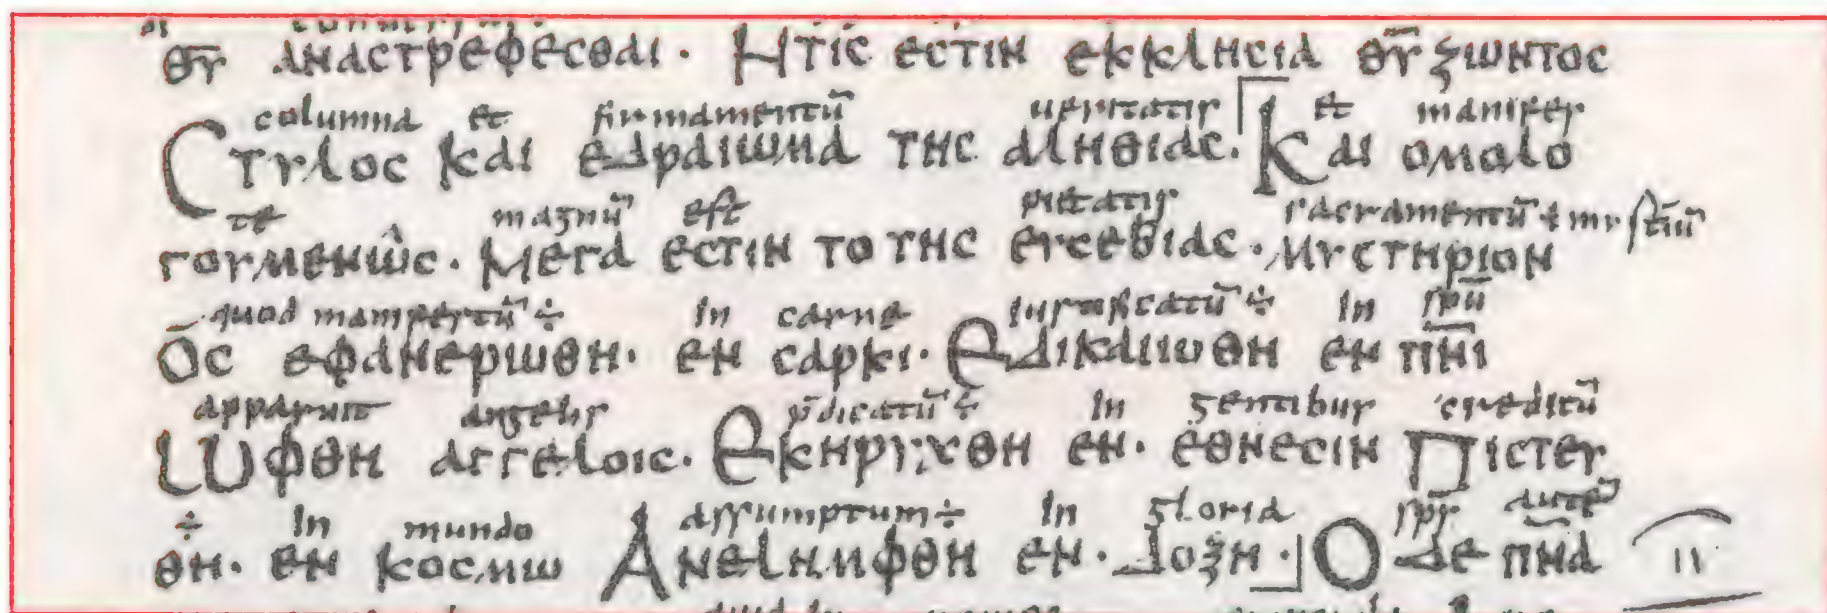 θῡ αναστρεφεσθαι · Ητις εστιν εκκλησια θῡ ζωντος
columna et firmamentū ueritatis et manifes
Cτυλος και εδραιωμα της αληθιας · Και ομολο
te magnū est pietatis sacramentū
γουμενως · Μεγα εστιν το της ευσεβιας · μυστηριον
quod manifestū ÷ In carne Iustificatū ÷ In spū
ος εφανερωθη · εν σαρκι · Εδικαιωθη εν πνι
apparuit angelis p̄dicatū ÷ In gentibus creditū
Ωφθη αγγελοις · Εκηρυχθη εν · εθνεσιν Πιστευ
÷ In mundo assumptum ÷ In gloria sps autē
θη · εν κοσμω Ανελημφθη εν · δοξη · Ο δε πνα